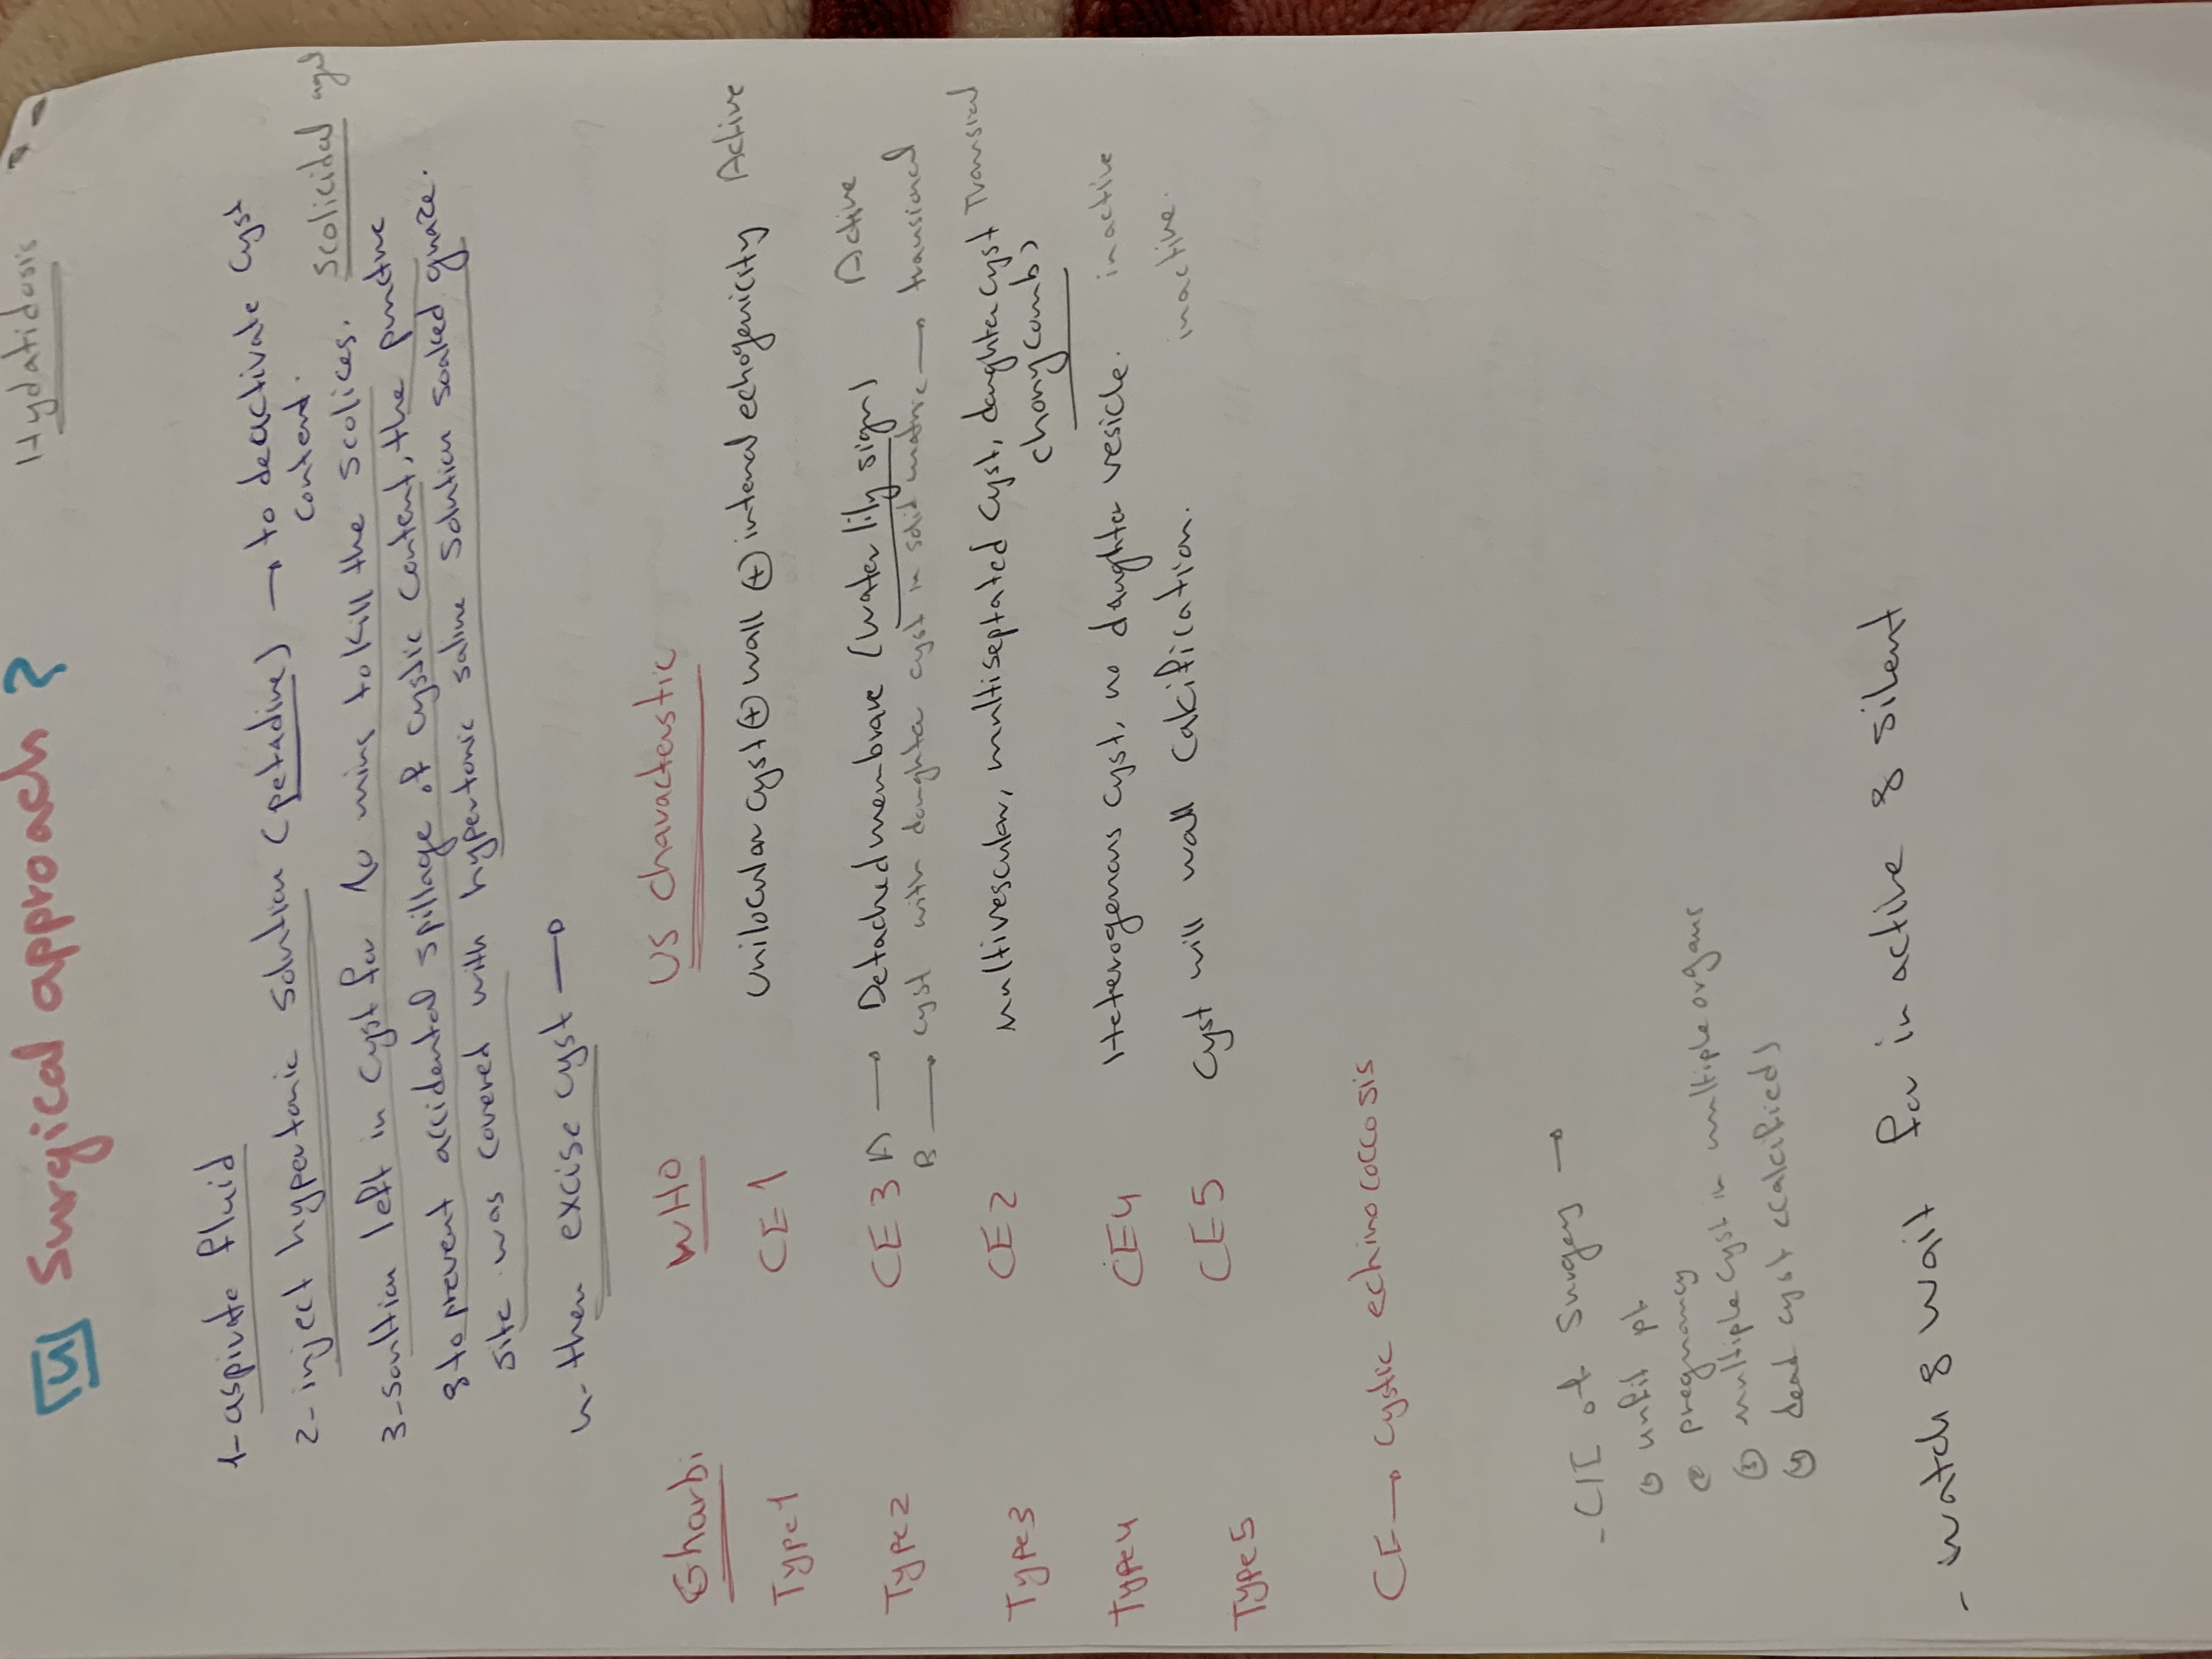 Hydatidosis
4 Surgical approach ?
1- aspirate fluid
2- inject hypertonic solution (petadine) → to deactivate cyst
content.
scolicidal
3- soultion left in cyst for 10 mins to kill the scolices.
& to prevent accidental spillage of cystic content, the punctive
site was covered with hypertonic saline solution soaked guaze.
4- then excise cyst →
Gharbi WHO US characterstic
Type 1 CE 1 unilocular cyst ⊕ wall ⊕ internal echogenicity Active
Type 2 CE 3 A → Detached membrane (water lily sign) Active
B → cyst with daughter cyst in solid matric → transional
Type 3 CE 2 multivescular, multiseptated cyst, daughter cyst Transial
(honycomb)
Type 4 CE4 Heterogenous cyst, no daughter vesicle. inactive
Type 5 CE5 cyst will wall calcification. inactive.
CE → cystic echinococcosis
- CI of surgery →
① unfit pt
② pregnancy
③ multiple cyst in multiple organs
④ dead cyst (calcified)
- watch & wait for in active & silent